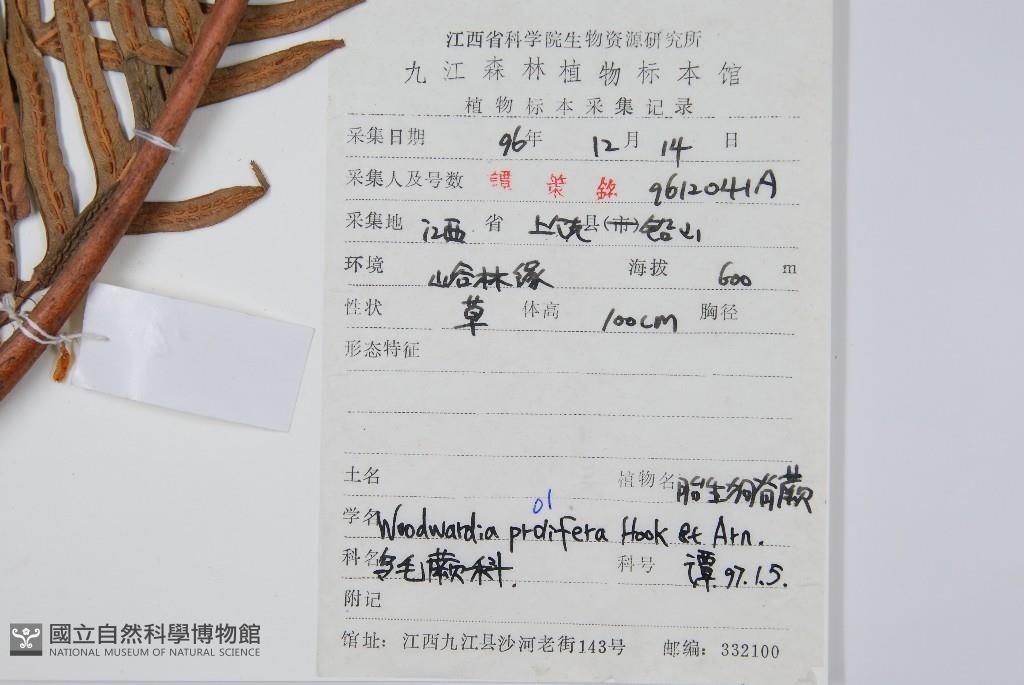 江西省科学院生物资源研究所
九江森林植物标本馆
植物标本采集记录
采集日期 96年 12月 14 日
采集人及号数 譚策銘 9612041A
采集地 江西 省 上饶县(市)铅山
环境 峆林缘 海拔 600 m
性状 草 体高 100cm 胸径
形态特征
土名 植物名 胎生狗脊蕨
01
学名 Woodwardia prolifera Hook et Arn.
科名 乌毛蕨科. 科号 谭.97.1.5.
附记
馆址: 江西九江县沙河老街143号 邮编: 332100
國立自然科學博物館
NATIONAL MUSEUM OF NATURAL SCIENCE